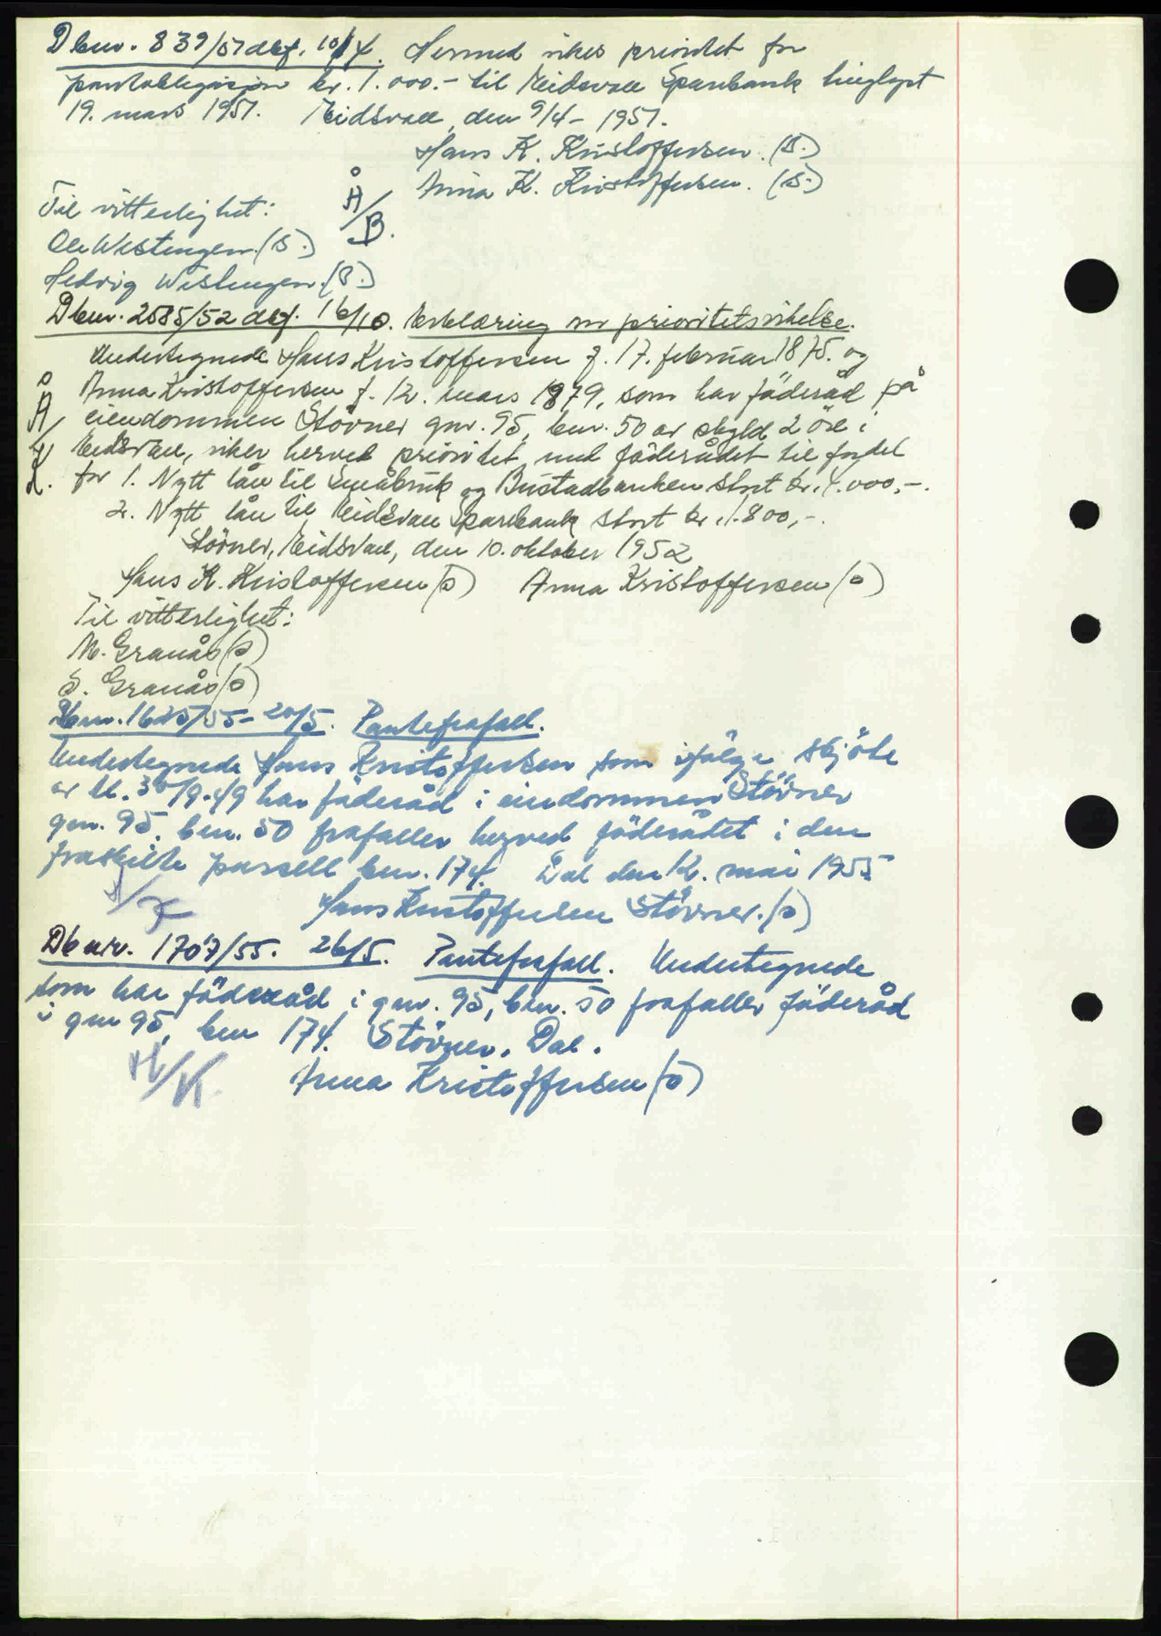 Dbnr. 839/51 dbf. 10/4. Hermed vikes prioritet for
pantobligasjon kr. 1.000.- til Eidsvoll Sparebank tinglyst
19. mars 1951. Eidsvoll, den 9/4- 1951.
Hans K. Kristoffersen. (S.)
Anna K. Kristoffersen. (S.)
Å/B.
Til vitterlighet:
Ole Westengen (S.)
Hedvig Westengen. (S.)
Dbnr. 2585/52 dbf. 16/10. Erklæring om prioritetsvikelse.
Undertegnede Hans Kristoffersen f. 17. februar 1875. og
Anna Kristoffersen f. 12. mars 1879, som har föderåd på
eiendommen Stövner gnr. 95, bnr. 50 av skyld 2 öre i
Eidsvoll, viker herved prioritet med föderådet til fordel
for 1. Nytt lån til Småbruk og Bustadbanken stort kr. 4.000,-.
2. Nytt lån til Eidsvoll Sparebank stort kr. 1.800,-.
Å/K.
Stövner, Eidsvoll, den 10. oktober 1952
Hans K. Kristoffersen (s) Anna Kristoffersen (s)
Til vitterlighet:
M. Granås (s)
S. Granås (s)
Dbnr. 1625/55 - 20/5. Pantefrafall.
Undertegnede Hans Kristoffersen som ifölge skjöte
av 30/9-49 har föderåd i eiendommen Stövner
gnr. 95, bnr. 50 frafaller herved föderådet i den
fraskilte parsell bnr. 174. Dal den 12. mai 1955
Hans Kristoffersen Stövner. (s)
Dbnr. 1707/55. 26/5. Pantefrafall. Undertegnede
som har föderåd i gnr. 95, bnr. 50 frafaller föderåd
i gnr 95, bnr 174. Stövner. Dal.
H/K.
Anna Kristoffersen (s)